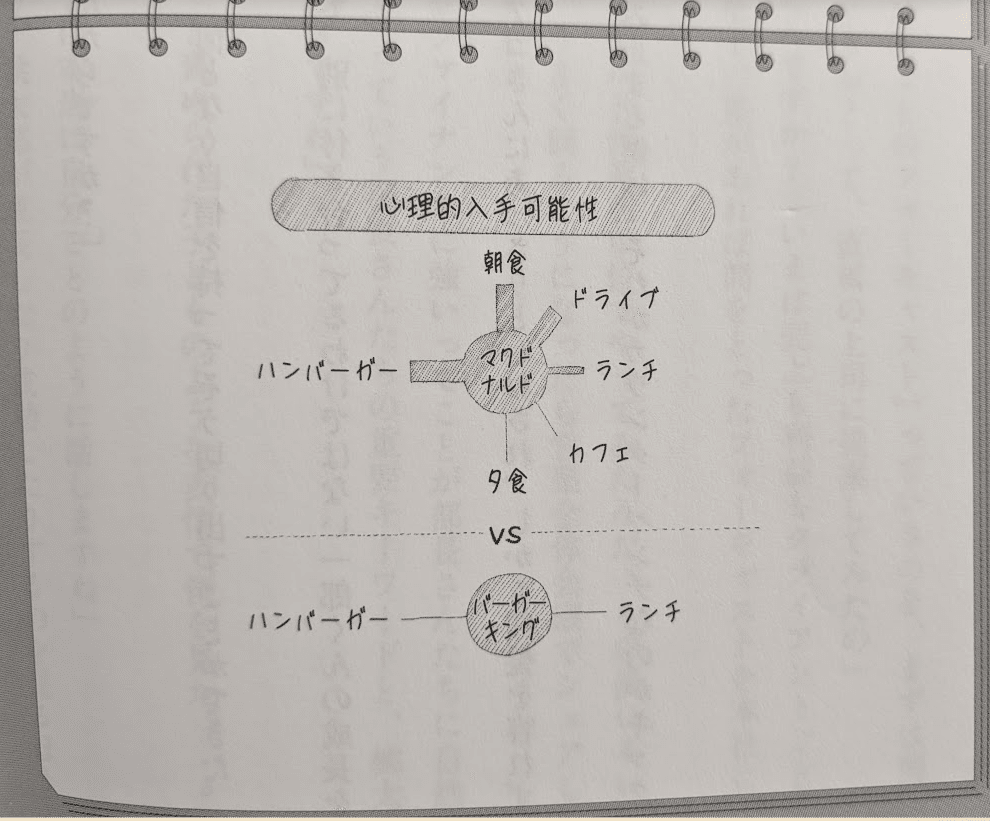 心理的入手可能性
朝食
ドライブ
ハンバーガー
マクド
ナルド
ランチ
カフェ
夕食
VS
ハンバーガー
バーガー
キング
ランチ